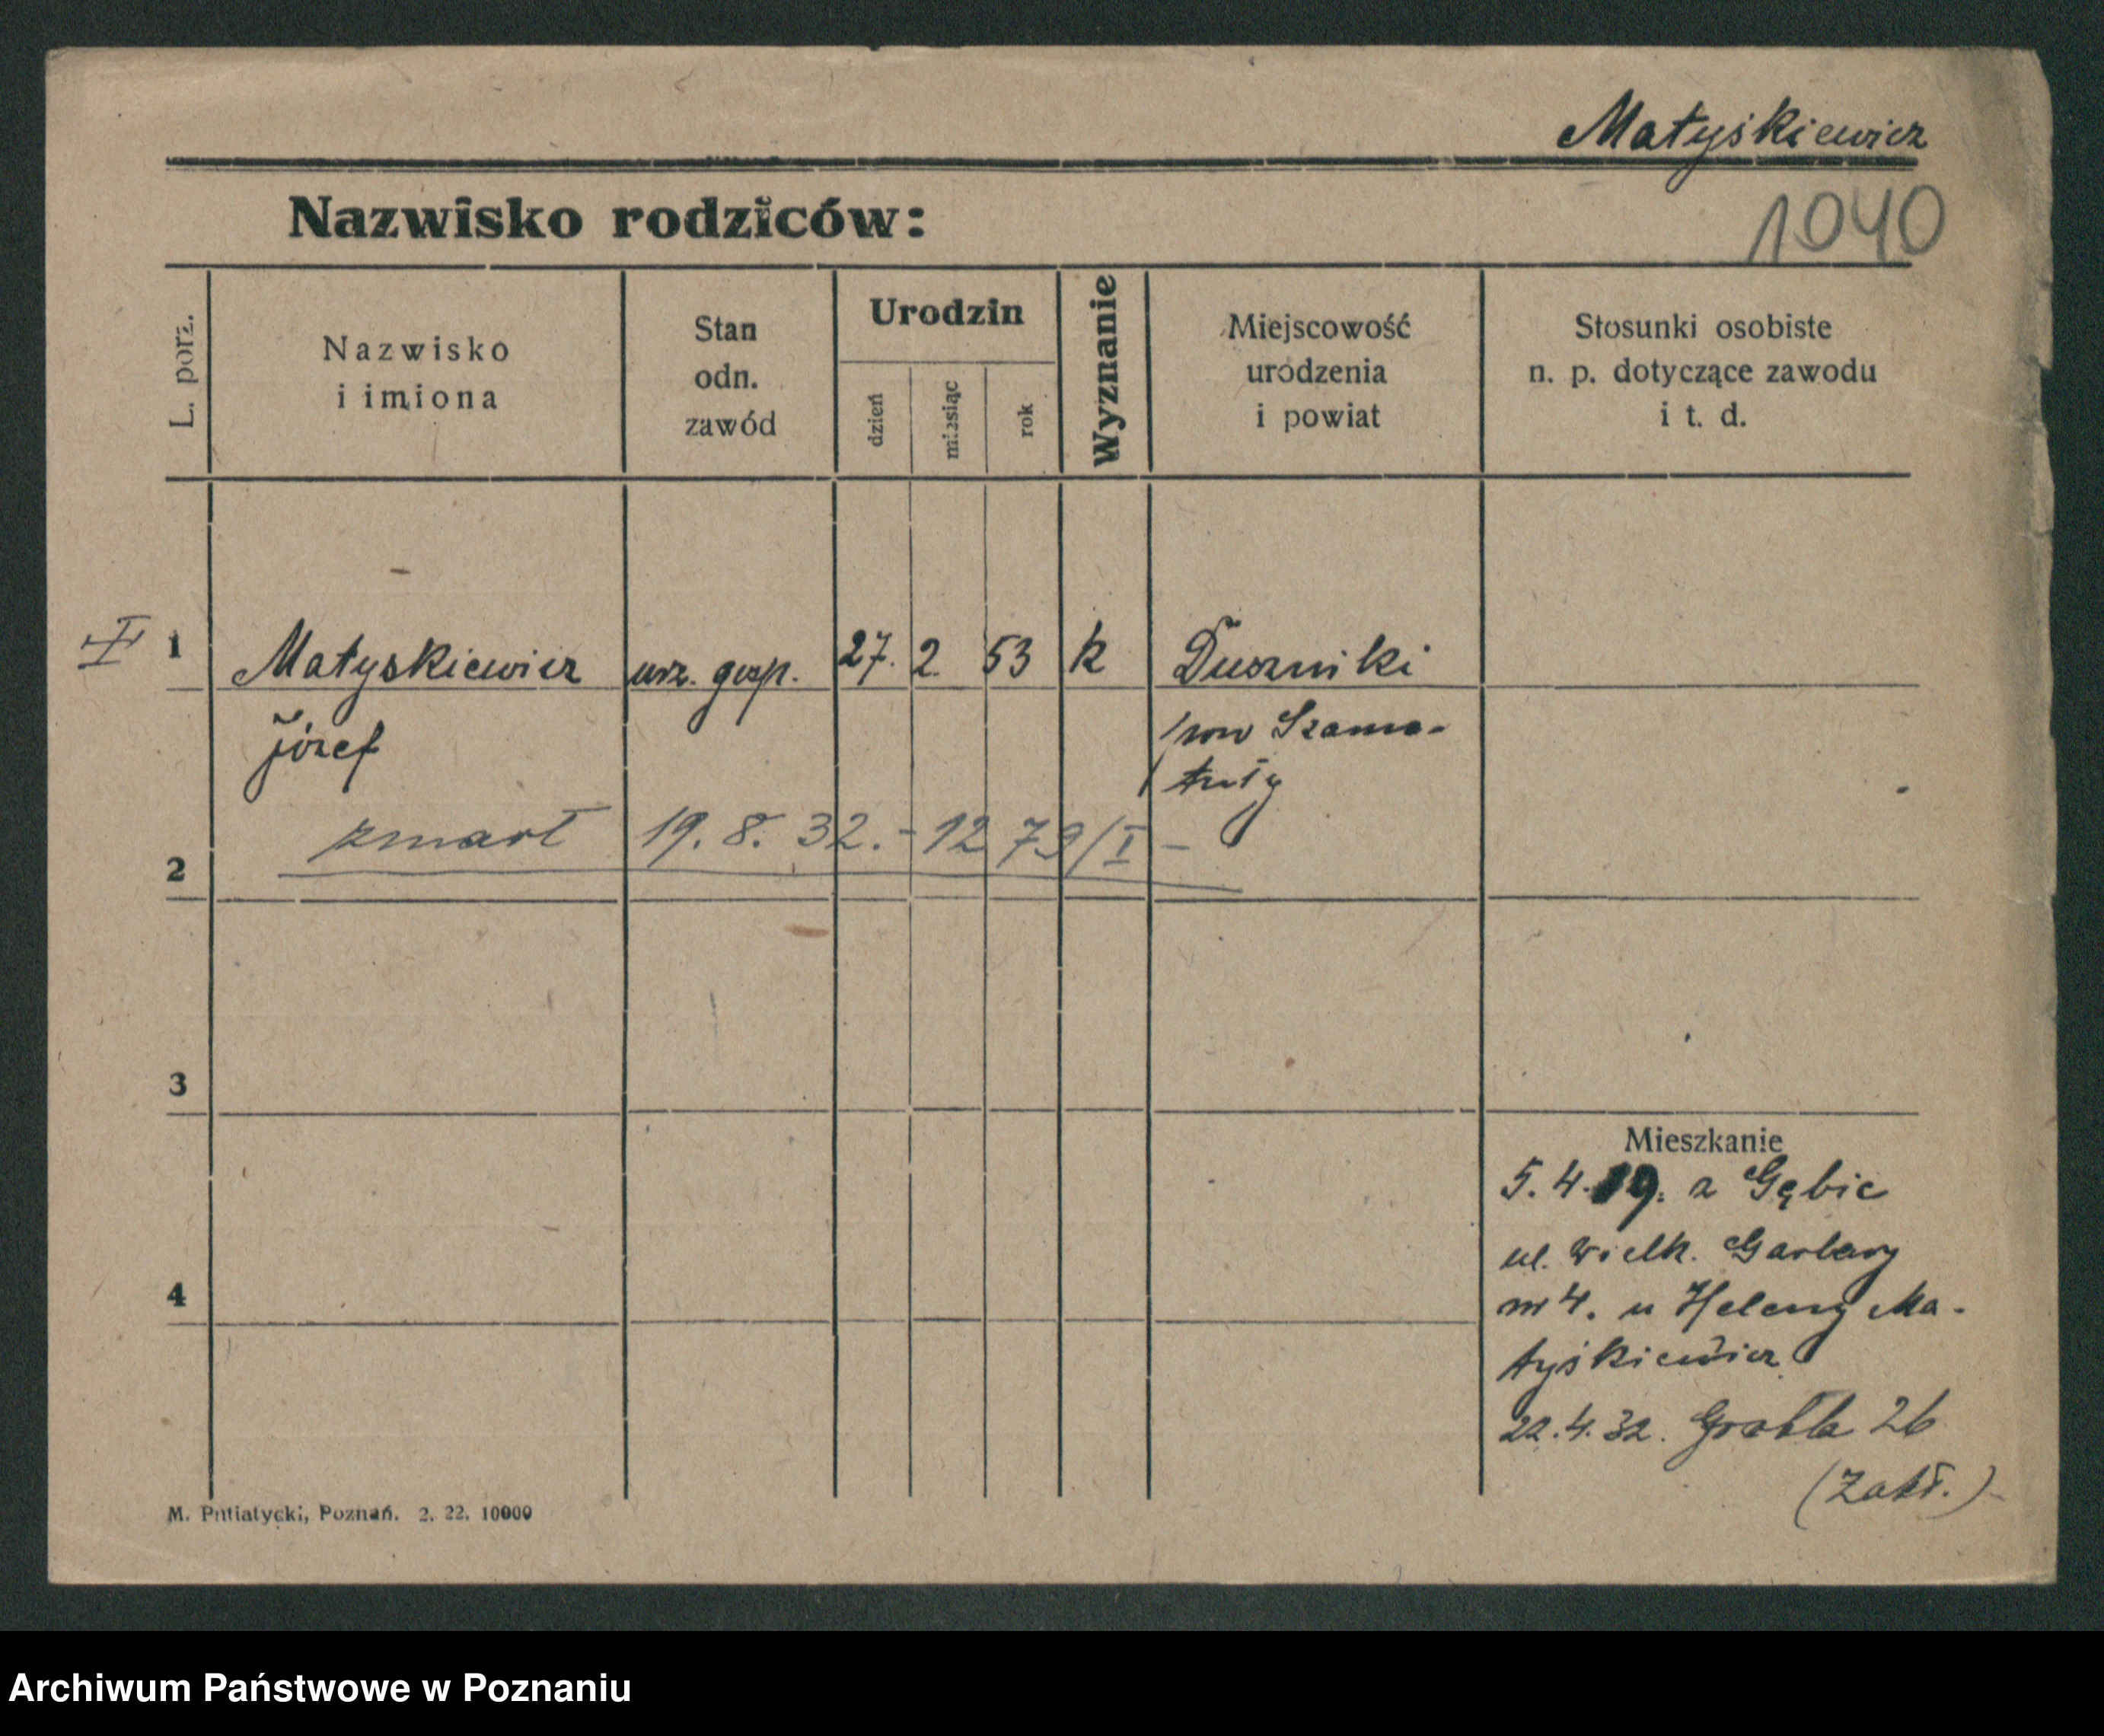 Matyśkiewicz
1040
Nazwisko rodziców:
L. porz.
Nazwisko
i imiona
Stan
odn.
zawód
Urodzin
dzień
miesiąc
rok
Wyznanie
Miejscowość
urodzenia
i powiat
Stosunki osobiste
n. p. dotyczące zawodu
i t. d.
I 1 Matyskiewicz urz. gosp. 27. 2. 53 k Duszniki
Józef pow Szamo-
tuły
zmarł 19. 8. 32. - 1279/I -
2
3
4
Mieszkanie
5. 4. 19. z Gębic
ul. Wielk. Garbary
nr 4. u Heleny Ma-
tyśkiewicz
22. 4. 32. Grobla 26
(Zakł.)-
M. Putiatycki, Poznań. 2. 22. 10000
Archiwum Państwowe w Poznaniu